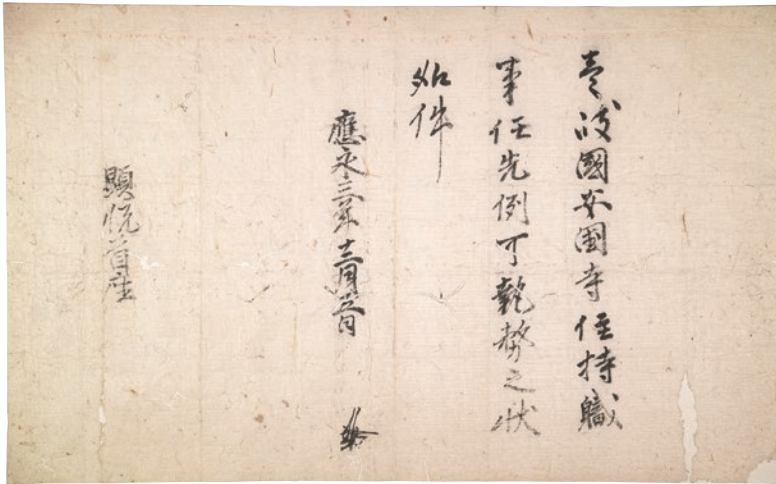 壱岐國安國寺住持職
事任先例可執務之状
如件
應永三年十二月五日
顕悦首座